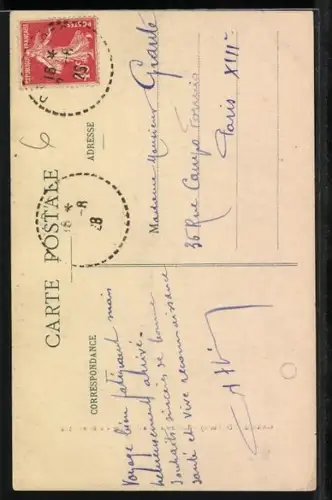 CARTE POSTALE
CORRESPONDANCE
ADRESSE
POSTES
18 *
-8
28
18 *
-8
28
6
Voyage bien fatigant mais
heureusement arrivé.
Souhaits sincères de bonne
santé et vive reconnaissance
Madame Monsieur
36 Rue Campo Formio
Paris XIII